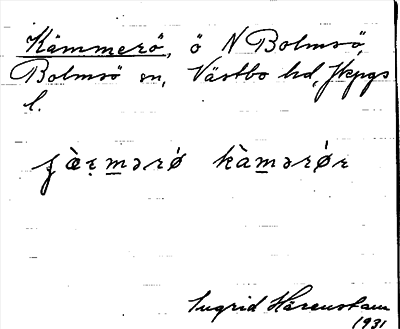 Kämmerö, ö N Bolmsö,
Bolmsö sn, Västbo hd, Jkpgs
l.
kàmərǿr
Ingrid Härenstam
1931